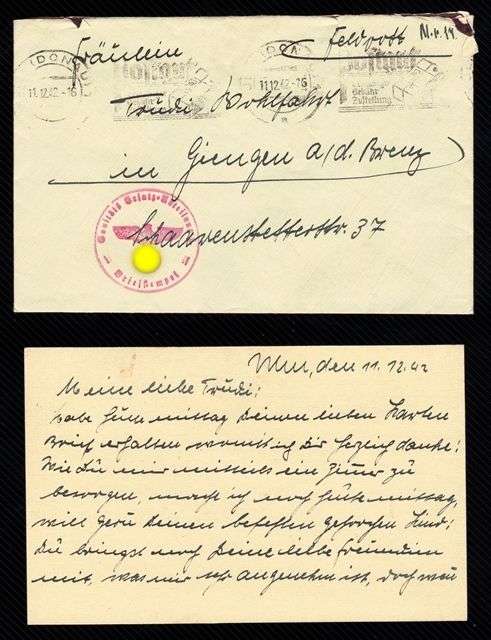 Fräulein
Feldpost
(DONAU)
11.12.42-16
11.12.42-16
Trudi Wohlfahrt
Zustellung
in Giengen a/d. Brenz
Sanitäts Ersatz-Abteilung
Schaarenstetterstr. 37
Briefstempel
Ulm, den 11. 12. 42
Meine liebe Trudi!
habe heute mittag Deinen lieben Karten
Brief erhalten womit ich Dir herzlich danke!
Wie Du mir mitteils ein Zimer zu
besorgen, mach ich noch heute mittag,
will gern Deinen befehlen gehorchen Kind!
Du bringst noch Deine liebe Freundin
mit, was mir sehr angenehm ist, doch wen